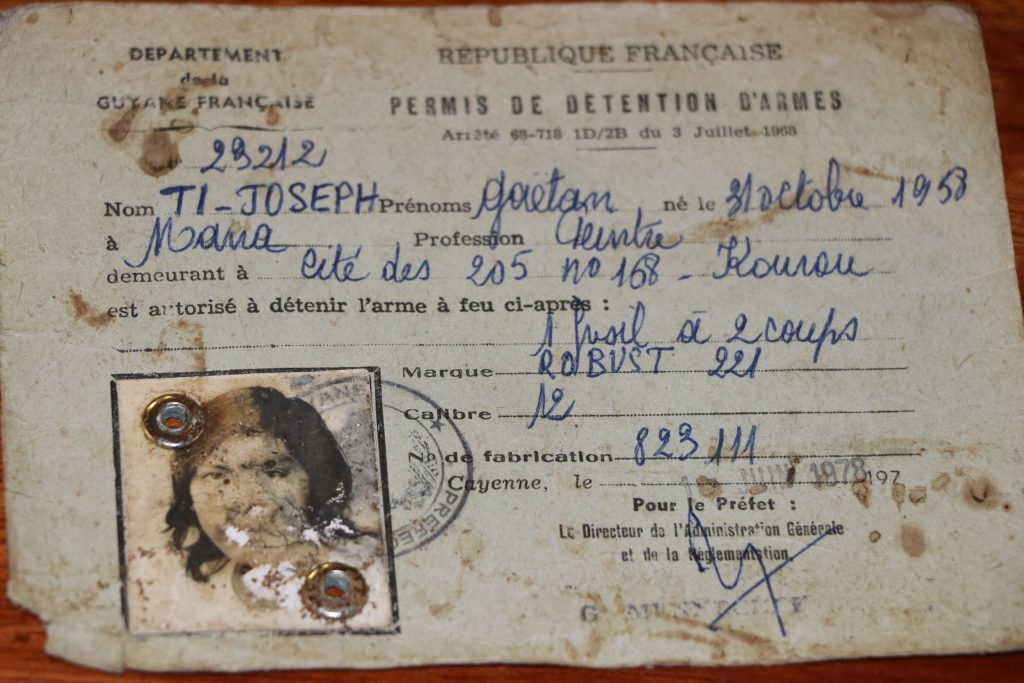 DEPARTEMENT
de la
GUYANE FRANÇAISE
REPUBLIQUE FRANÇAISE
PERMIS DE DETENTION D'ARMES
Arrêté 68-718 1D/2B du 3 Juillet 1968
23212
Nom TI-JOSEPH Prénoms Gaëtan né le 31 octobre 1958
à Mana Profession Peintre
demeurant à cité des 205 no 168 - Kourou
est autorisé à détenir l'arme à feu ci-après :
1 fusil à 2 coups
Marque ROBUST 221
Calibre 12
No de fabrication 823 111
Cayenne, le JUIN 1978 197
Pour le Préfet :
Le Directeur de l'Administration Générale
et de la Réglementation
G.